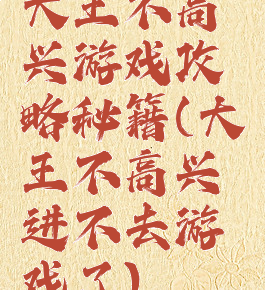 大王不高
兴游戏攻
略秘籍(大
王不高兴
进不去游
戏了)